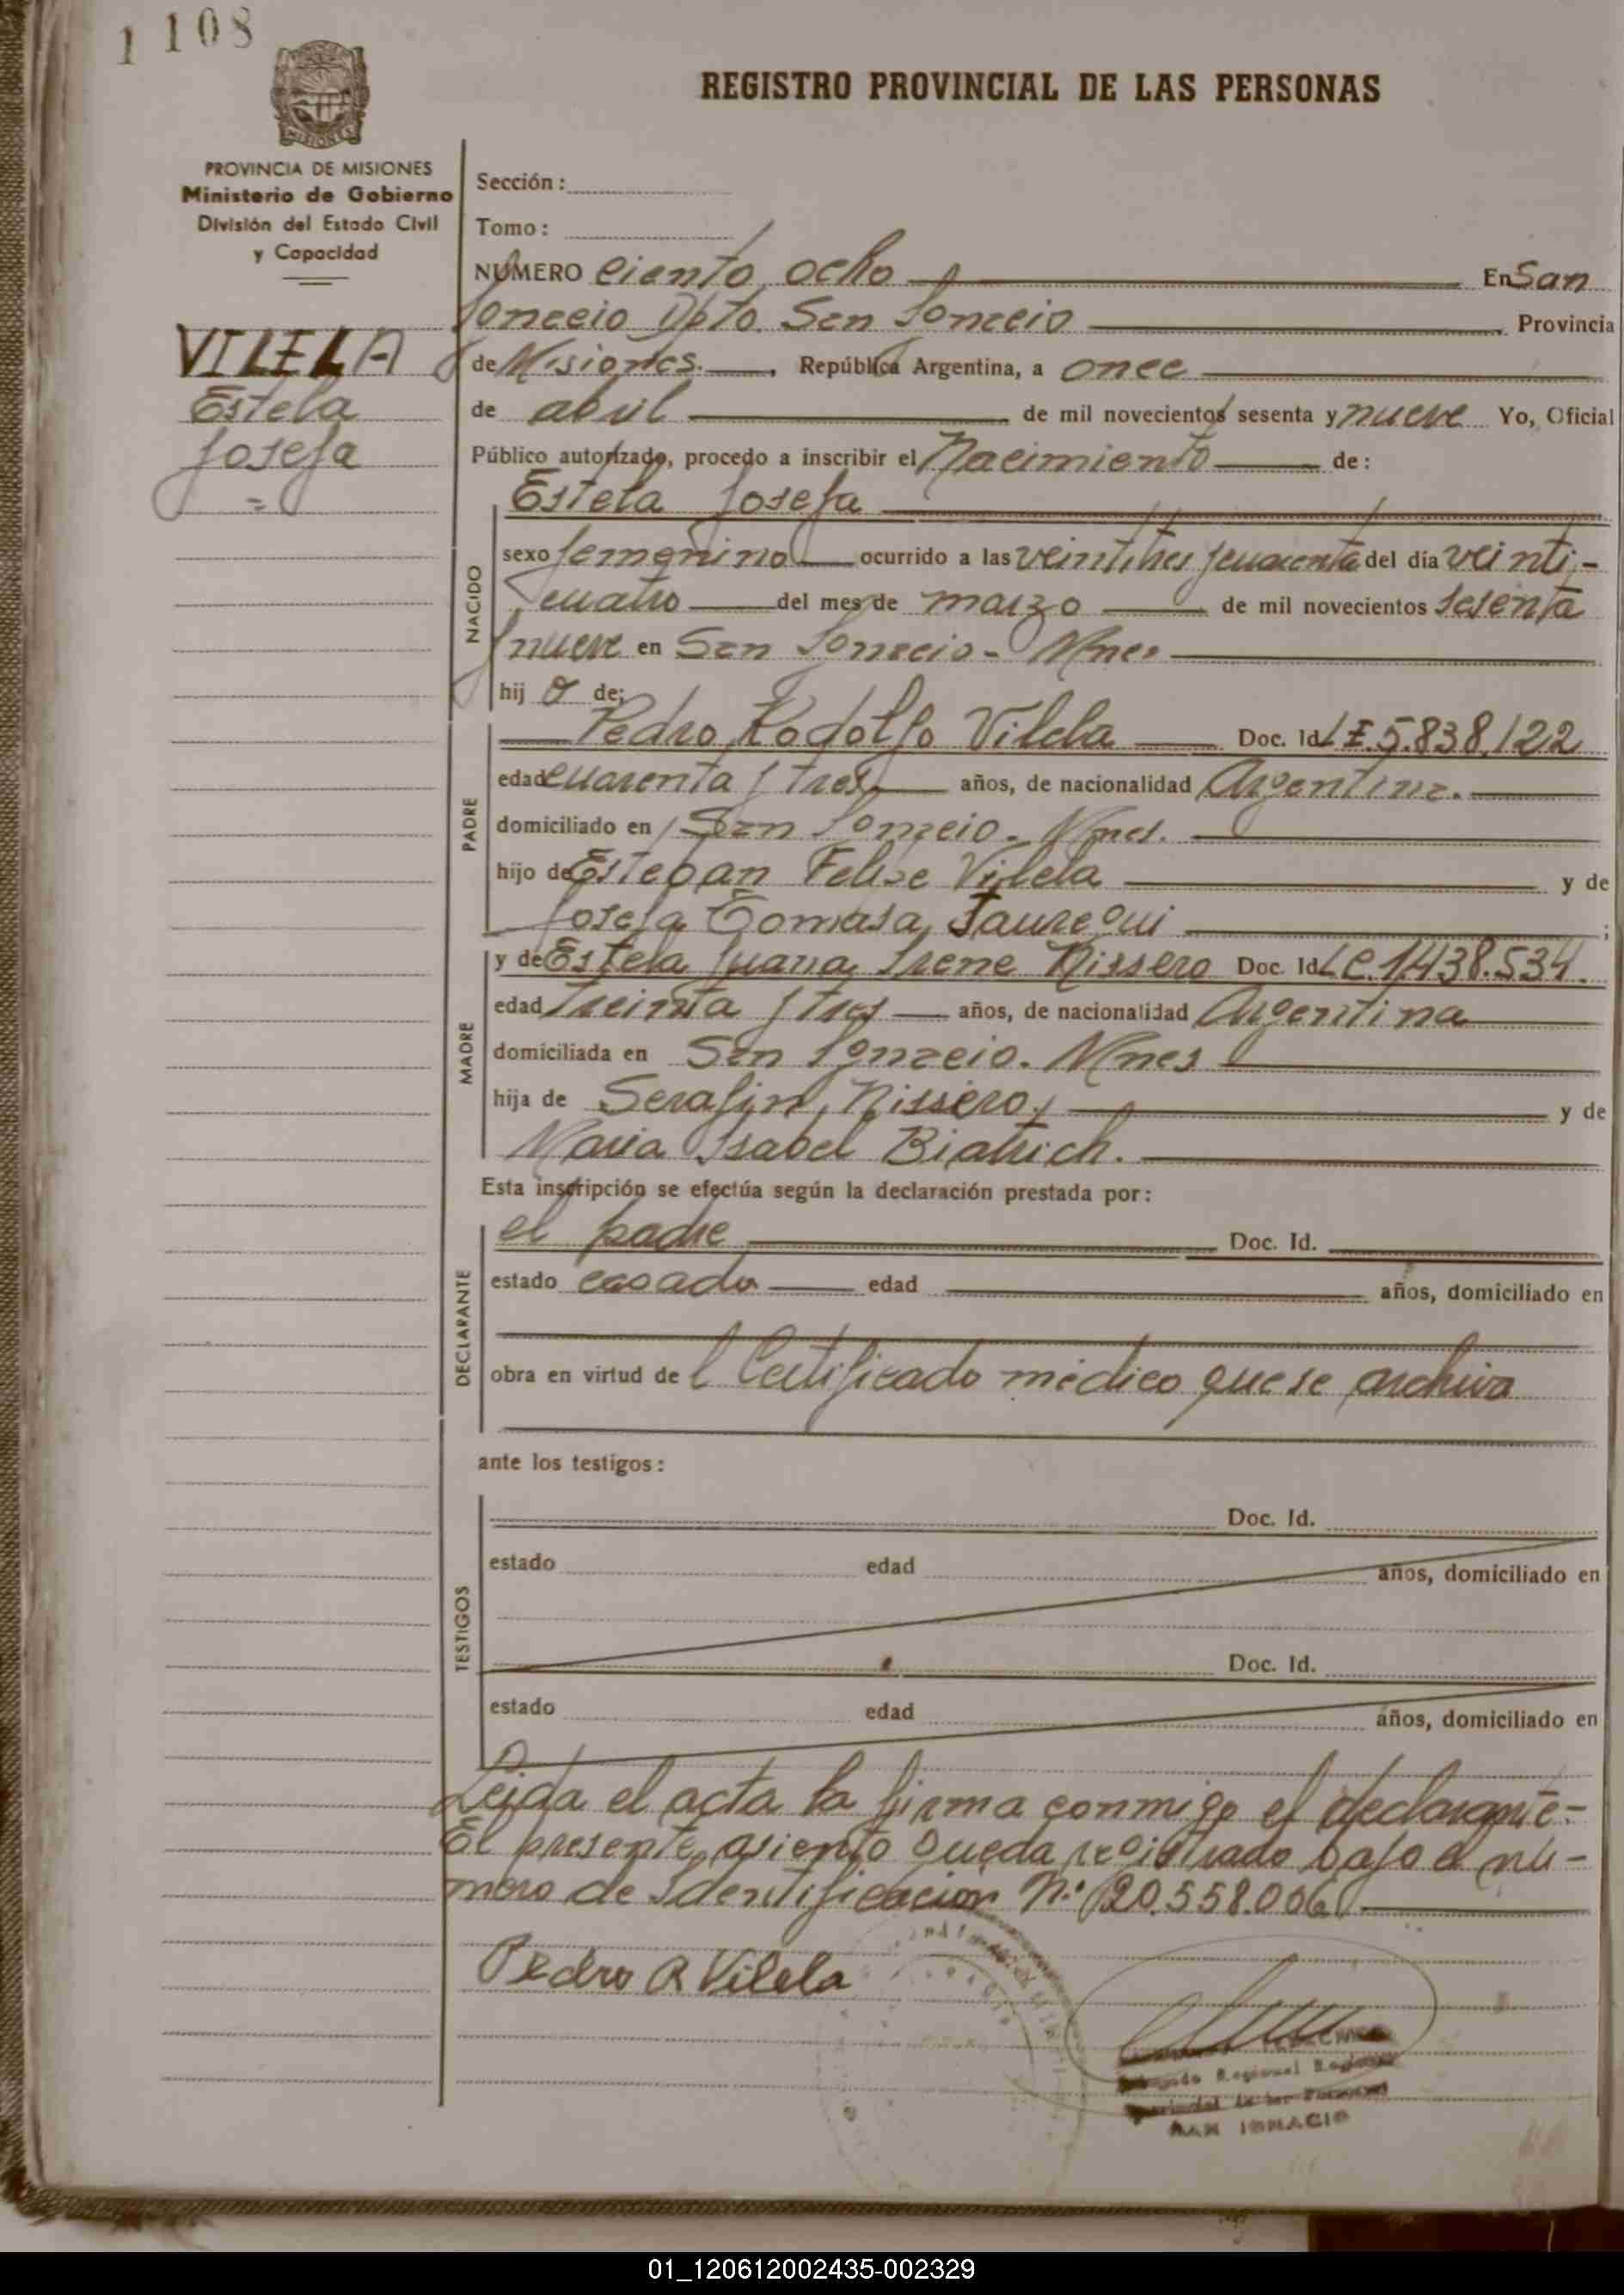 1 108
REGISTRO PROVINCIAL DE LAS PERSONAS
PROVINCIA DE MISIONES
Ministerio de Gobierno
División del Estado Civil
y Capacidad
VILELA
Estela
Josefa
=
Sección:
Tomo:
NÚMERO ciento ocho En San
Ignacio Dpto. San Ignacio Provincia
de Misiones. , República Argentina, a once
de abril de mil novecientos sesenta y nueve Yo, Oficial
Público autorizado, procedo a inscribir el Nacimiento de:
Estela Josefa
NACIDO
sexo femenino ocurrido a las veintitres y cuarenta del día veinti-
cuatro del mes de marzo de mil novecientos sesenta
y nueve en San Ignacio - Mnes
hij a de:
PADRE
Pedro Rodolfo Vilela Doc. Id. L E. 5.838.122
edad cuarenta y tres años, de nacionalidad Argentina.
domiciliado en San Ignacio - Mnes.
hijo de Esteban Felipe Vilela y de
Josefa Tomasa Jauregui ;
MADRE
y de Estela Juana Irene Nissero Doc. Id. L C. 1.438.534.
edad treinta y tres años, de nacionalidad Argentina
domiciliada en San Ignacio. Mnes
hija de Serafin Nissero y de
Maria Isabel Biatrich.
Esta inscripción se efectúa según la declaración prestada por:
DECLARANTE
el padre Doc. Id.
estado casado edad años, domiciliado en
obra en virtud de l Certificado médico que se archiva
ante los testigos:
TESTIGOS
Doc. Id.
estado edad años, domiciliado en
Doc. Id.
estado edad años, domiciliado en
Leida el acta la firma conmigo el declarante-
El presente asiento queda registrado bajo el nú-
mero de Identificacion N.° 20.558.006
Pedro R Vilela
Regional
SAN IGNACIO
01_120612002435-002329